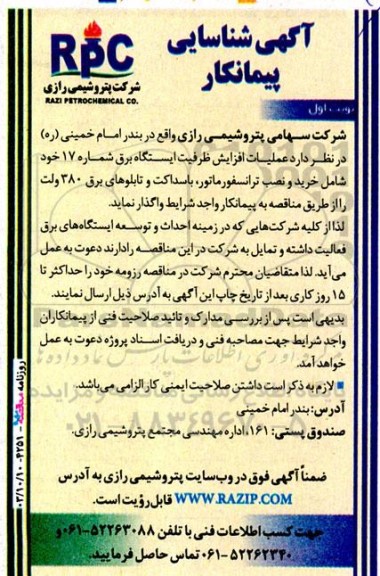 آگهی شناسایی
پیمانکار
RPC
شرکت پتروشیمی رازی
RAZI PETROCHEMICAL CO.
نوبت اول
شرکت سهامی پتروشیمی رازی واقع در بندر امام خمینی (ره)
در نظر دارد عملیات افزایش ظرفیت ایستگاه برق شماره ۱۷ خود
شامل خرید و نصب ترانسفورماتور، باسداکت و تابلوهای برق ۳۸۰ ولت
را از طریق مناقصه به پیمانکار واجد شرایط واگذار نماید.
لذا از کلیه شرکت‌هایی که در زمینه احداث و توسعه ایستگاه‌های برق
فعالیت داشته و تمایل به شرکت در این مناقصه را دارند دعوت به عمل
می‌آید. لذا متقاضیان محترم شرکت در مناقصه رزومه خود را حداکثر تا
۱۵ روز کاری بعد از تاریخ چاپ این آگهی به آدرس ذیل ارسال نمایند.
بدیهی است پس از بررسی مدارک و تائید صلاحیت فنی از پیمانکاران
واجد شرایط جهت مصاحبه فنی و دریافت اسناد پروژه دعوت به عمل
خواهد آمد.
لازم به ذکر است داشتن صلاحیت ایمنی کار الزامی می‌باشد.
آدرس: بندر امام خمینی
صندوق پستی: ۱۶۱، اداره مهندسی مجتمع پتروشیمی رازی.
ضمناً آگهی فوق در وب‌سایت پتروشیمی رازی به آدرس
WWW.RAZIP.COM قابل رؤیت است.
جهت کسب اطلاعات فنی با تلفن ۵۲۲۶۳۰۸۸-۰۶۱ و
۵۲۲۶۲۳۴۰-۰۶۱ تماس حاصل فرمایید.
روزنامه مناقصه مزایده - ۴۲۵۱ - ۰۳/۱۰/۱۰
۰۲۱-۸۸۳۴۹۶۷۰-۵